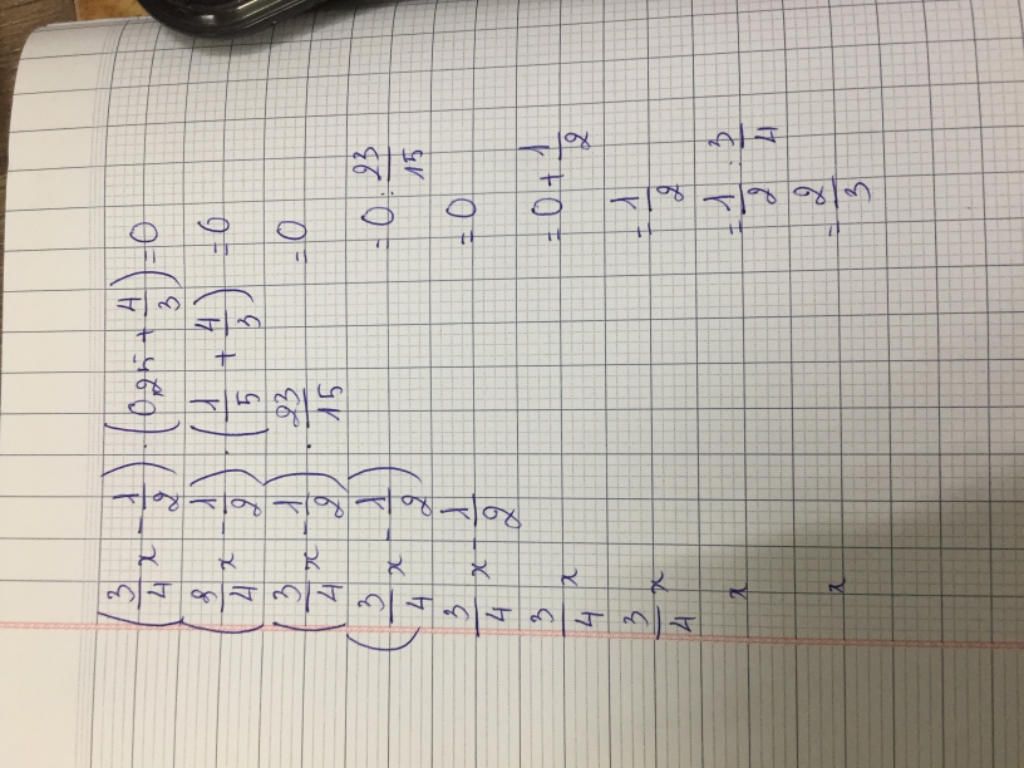 (3/4 x - 1/2) . (0,25 + 4/3) = 0
(3/4 x - 1/2) . (1/5 + 4/3) = 0
(3/4 x - 1/2) . 23/15 = 0
(3/4 x - 1/2) = 0 : 23/15
3/4 x - 1/2 = 0
3/4 x = 0 + 1/2
3/4 x = 1/2
x = 1/2 : 3/4
x = 2/3